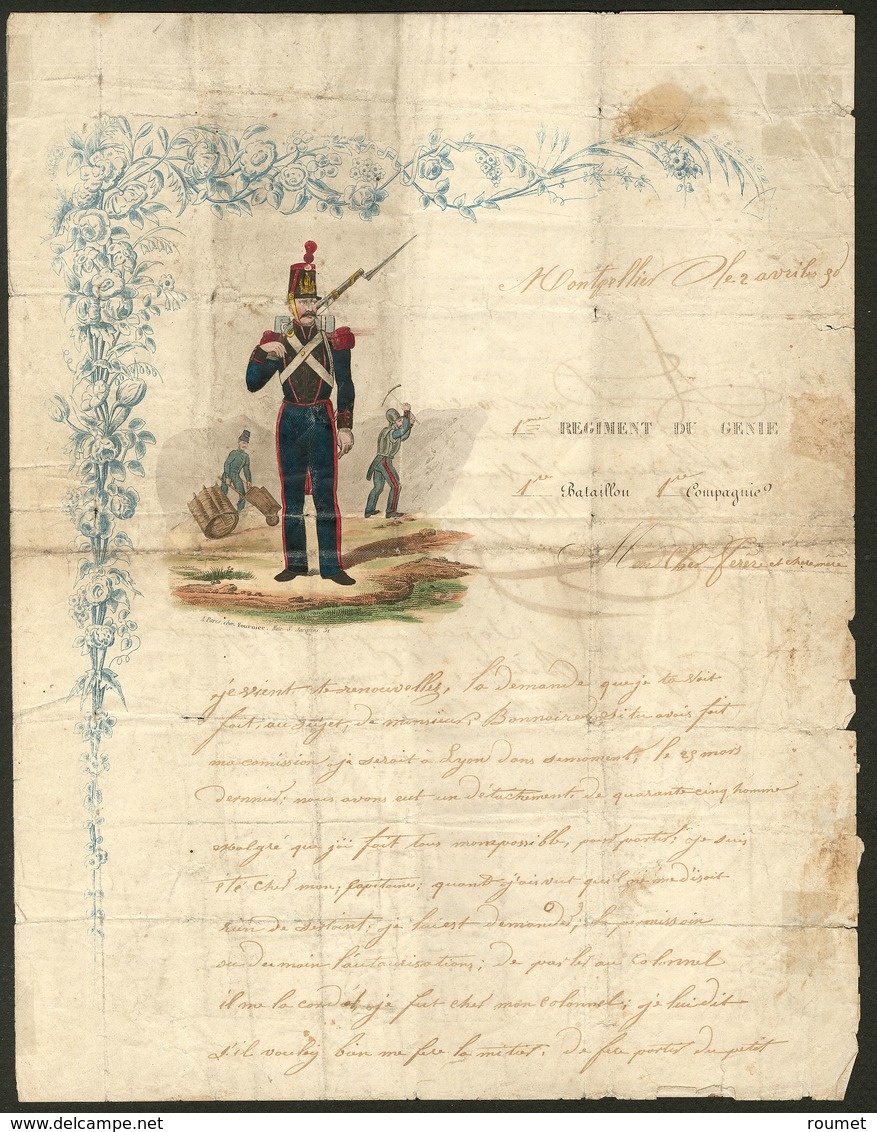 Montpellier le 2 avril
1er REGIMENT DU GENIE
1er Bataillon 1re Compagnie
Mon Cher Frère et chere mere
A Paris chez Fournier, Rue St Jacques
je vient te renouveller, la demande que je te
fait, au sujet, de monsieur, Bonnaire, si tu avois fait
ma comission, je serait à Lyon dans se moment, le 25 mars
dernier, nous avons eut un détachement, de quarante cinq homme
malgré que j'ai fait tous mon possible, pour partir, je suis
été cher mon, Capitaine, quant j'ais vut qu'il me disoit
rien de, je lui est demandé, la permission
ou du moin l'autaurisations, de parler au Colonnel
il me la, je fut cher mon Colonnel, je lui dit
s'il vouley bien me fere la, de fere partir du petit
www.delcampe.net
roumet